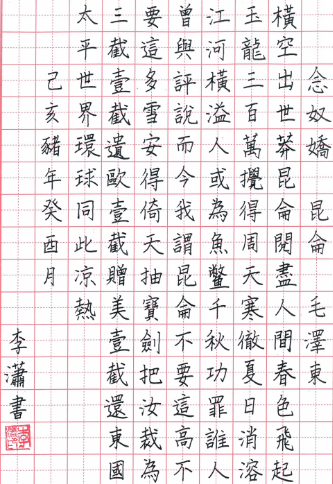 念奴嬌 昆侖 毛澤東
橫空出世莽昆侖閱盡人間春色飛起
玉龍三百萬攪得周天寒徹夏日消溶
江河橫溢人或為魚鱉千秋功罪誰人
曾與評說而今我謂昆侖不要這高不
要這多雪安得倚天抽寶劍把汝裁為
三截壹截遺歐壹截贈美壹截還東國
太平世界環球同此凉熱
己亥豬年癸酉月
李瀟書